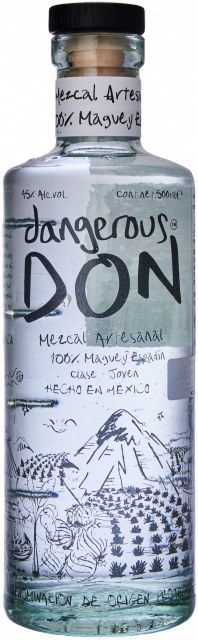 Mezcal Artesa
100% Maguey Es
45% Alc. vol. CONT. NET. 500ml
dangerous
DON
Mezcal Artesanal
100% Maguey Espadín
Clase: Joven
HECHO EN MÉXICO
DE ORIGEN